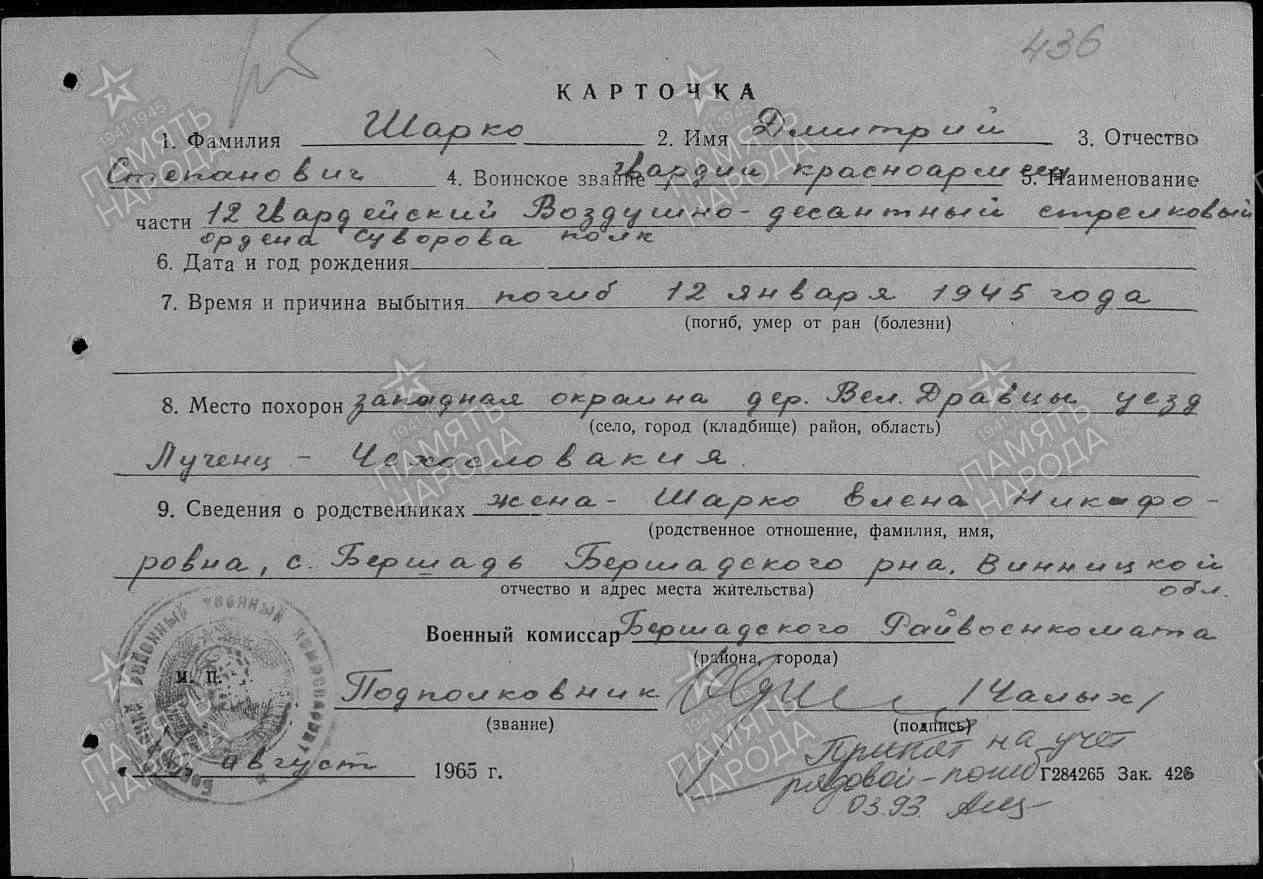 436
КАРТОЧКА
1. Фамилия Шарко 2. Имя Дмитрий 3. Отчество
Степанович 4. Воинское звание гвардии красноармеец 5. Наименование
части 12 Гвардейский Воздушно-десантный стрелковый
ордена Суворова полк
6. Дата и год рождения
7. Время и причина выбытия погиб 12 января 1945 года
(погиб, умер от ран (болезни)
8. Место похорон западная окраина дер. Вел. Дравцы уезд
(село, город (кладбище) район, область)
Лученц - Чехословакия
9. Сведения о родственниках жена - Шарко Елена Никифо-
(родственное отношение, фамилия, имя,
ровна, с. Бершадь Бершадского рна, Винницкой
отчество и адрес места жительства) обл.
Военный комиссар Бершадского Райвоенкомата
(района, города)
М. П.
Подполковник /Чалых/
(звание) (подпись)
август 1965 г.
Принят на учет
рядовой - погиб Г284265 Зак. 426
03.93.
ПАМЯТЬ НАРОДА
1941-1945